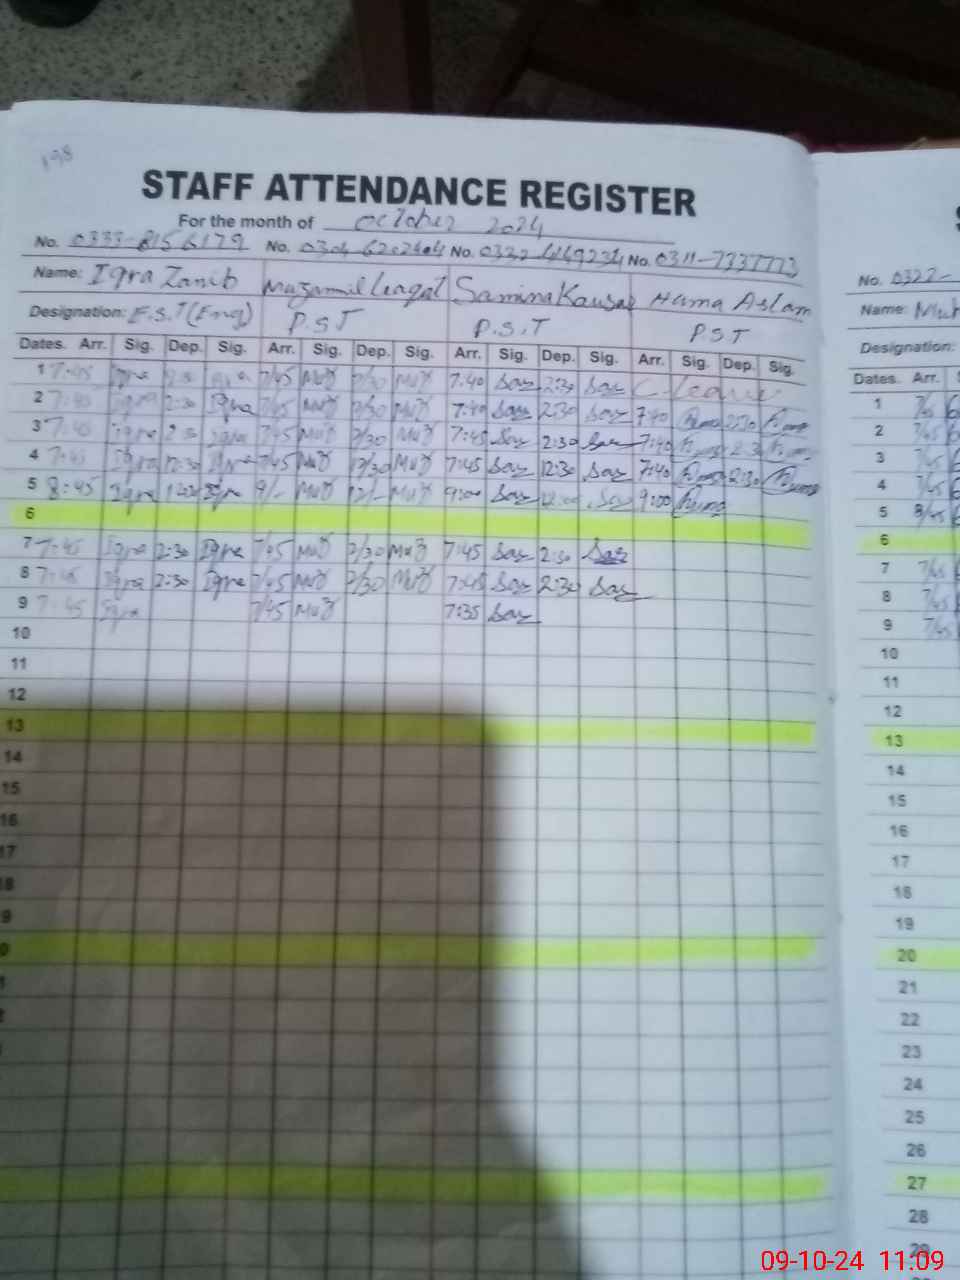 198
STAFF ATTENDANCE REGISTER
For the month of October 2024
No. 0333-8156179 No. 0304-6202404 No. 0332 4169234 No. 0311-7337773
Name: Iqra Zanib Muzamil Leaqat Samina Kausar Huma Aslam
Designation: E.S.T (Eng) P.S.T P.S.T P.S.T
Dates. Arr. Sig. Dep. Sig. Arr. Sig. Dep. Sig. Arr. Sig. Dep. Sig. Arr. Sig. Dep. Sig.
1 7:45 Iqra 2:30 Iqra 7/45 2/30 7:40 2:30 C Leave
2 7:45 Iqra 2:30 Iqra 7/45 2/30 7:40 2:30 7:40 2:30
3 7:45 Iqra 2:30 Iqra 7/45 2/30 7:45 2:30 7:40 2:3
4 7:45 Iqra 12:30 Iqra 7/45 12/30 7:45 12:30 7:40 12:30
5 8:45 Iqra Iqra 9/- 12/- 9:00 12:00 9:00
6
7 7:45 Iqra 2:30 Iqra 7/45 2/30 7:45 2:30
8 7:45 Iqra 2:30 Iqra 7/45 2/30 7:45 2:30
9 7:45 Iqra 7/45 7:35
10
11
12
13
14
15
16
17
8
9
0
No. 0322-
Name:
Designation:
Dates. Arr.
1 7/45
2 7/45
3 7/45
4 7/45
5 8/45
6
7 7/45
8 7/45
9 7/45
10
11
12
13
14
15
16
17
18
19
20
21
22
23
24
25
26
27
28
29
09-10-24 11:09